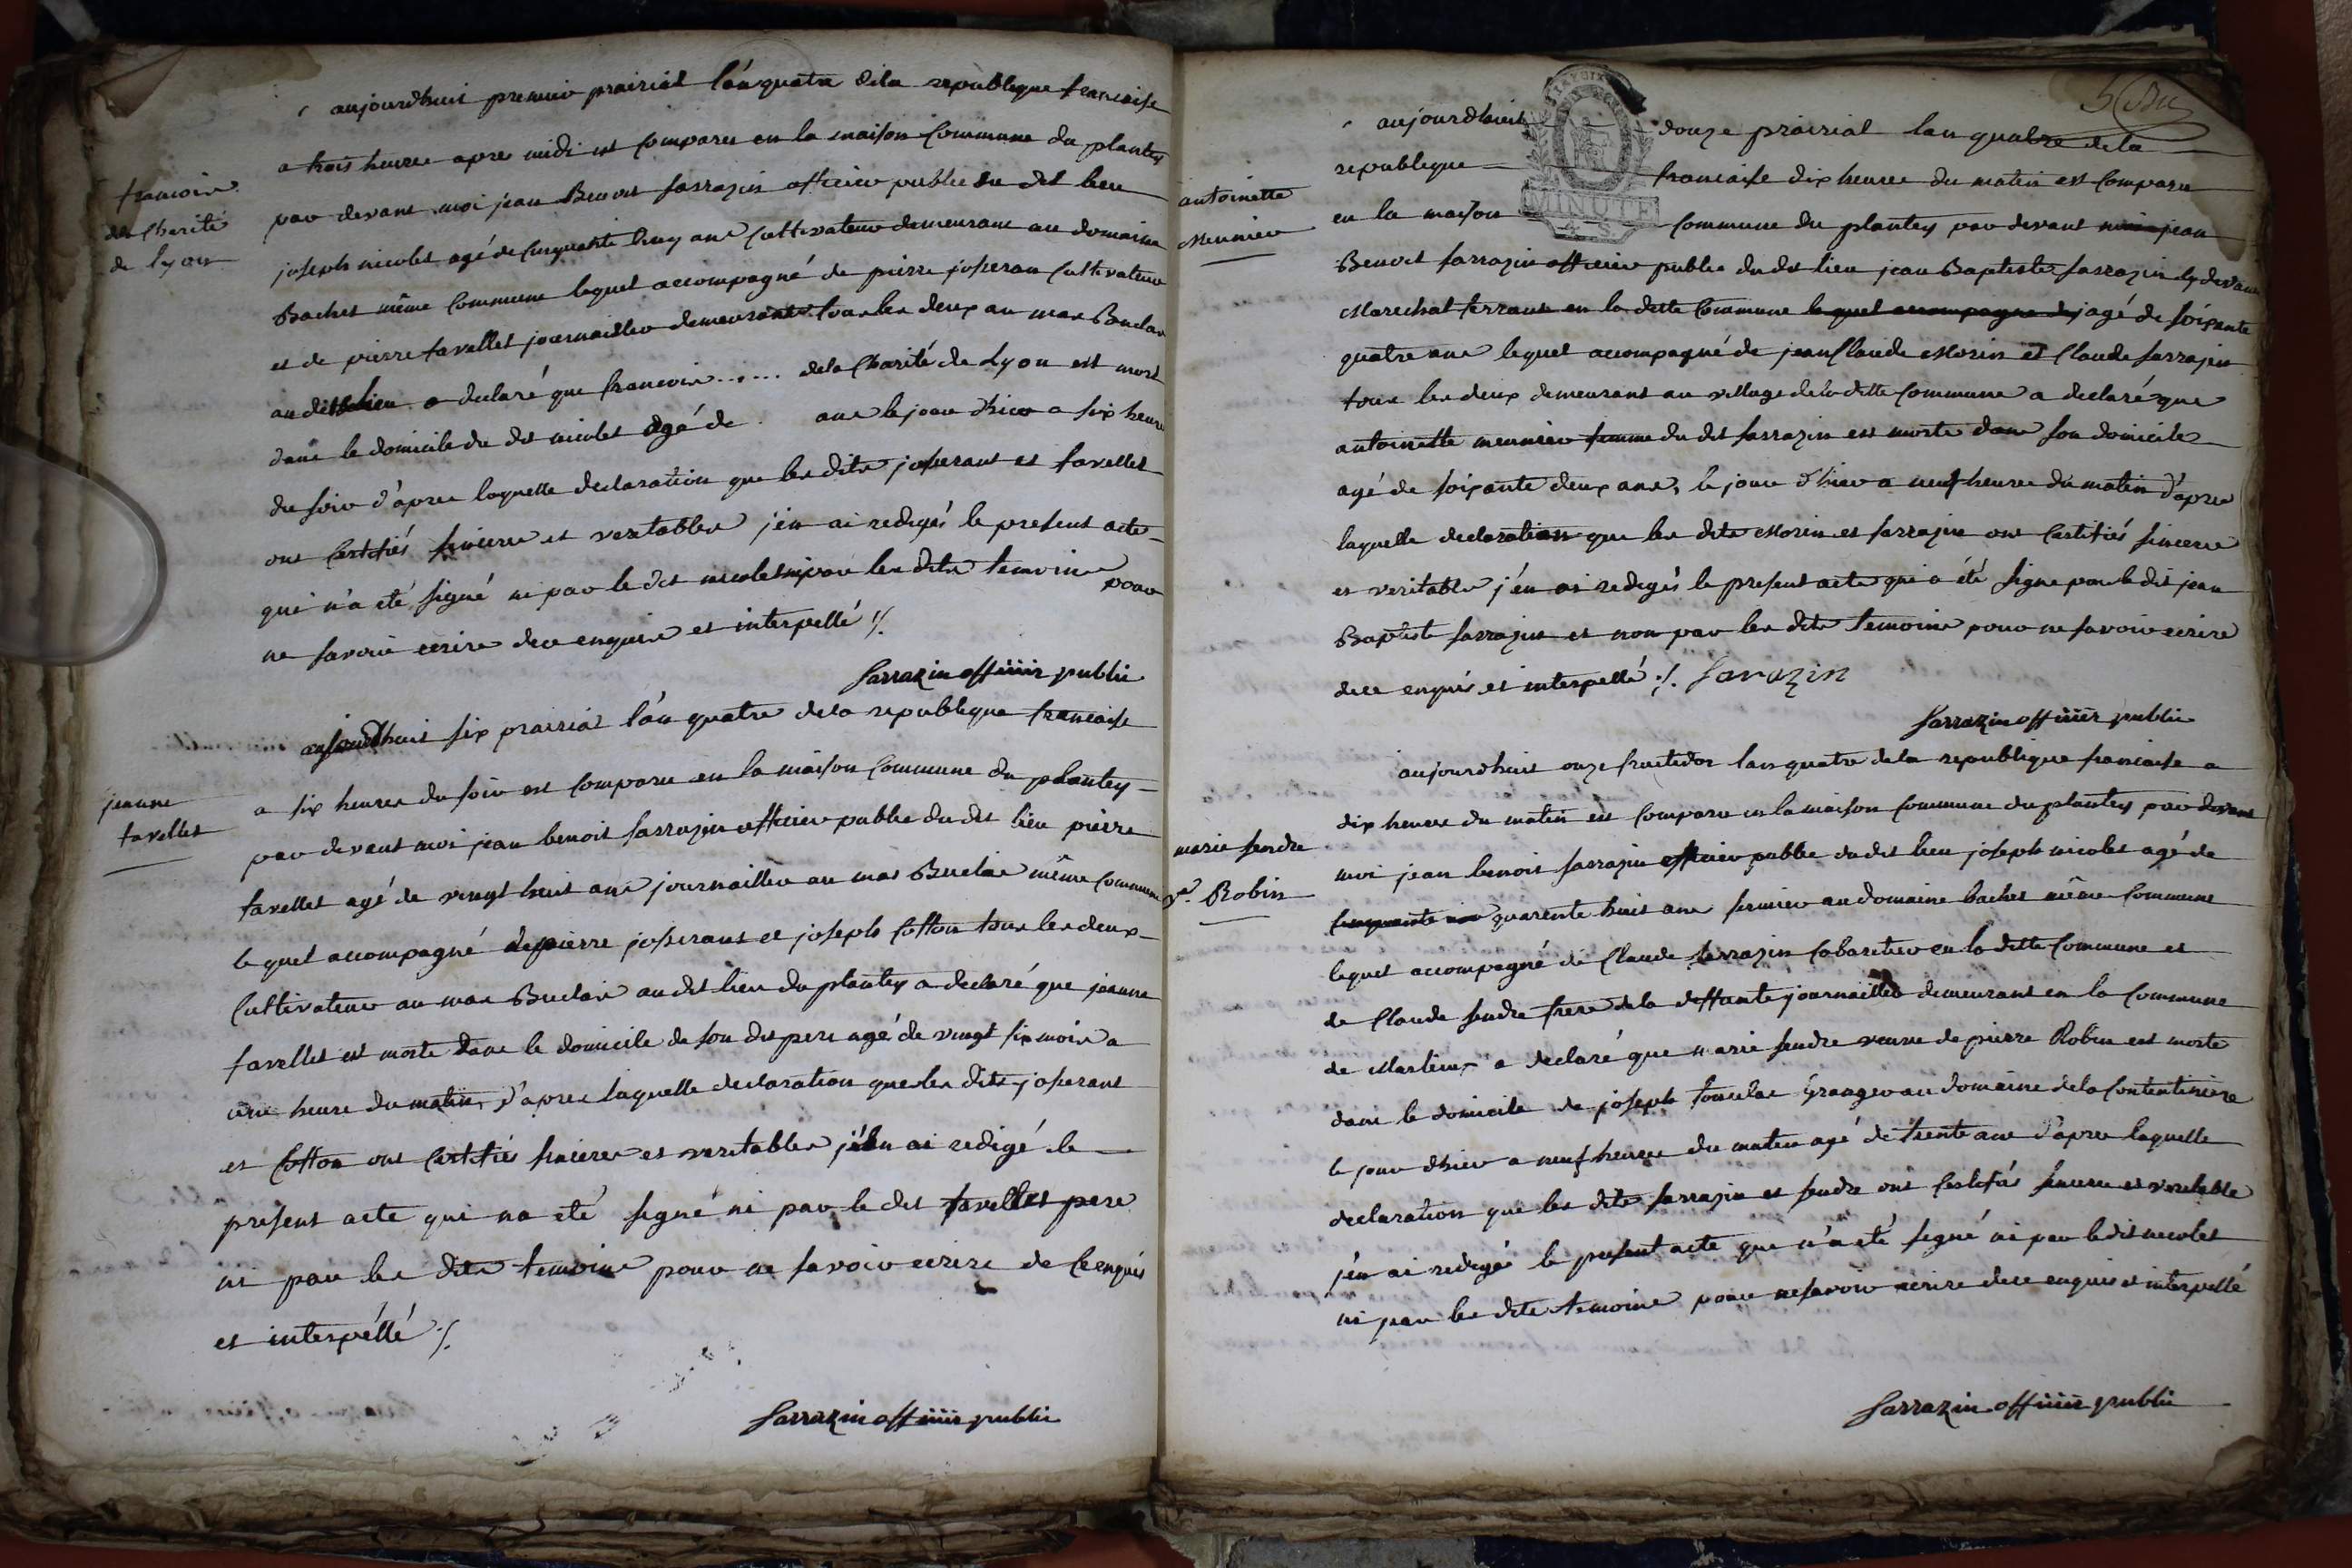 aujourdhuit premier prairial l'an quatre dela republique francaise
a trois heures apres midi est comparu en la maison commune du plantey
francoise
dela charité
de lyon
par devant moi jean Benoit sarrazin officier public du dit lieu
joseph nicolet agé de cinquante ans cultivateur demeurant au domaine
Bachet même commune lequel accompagné de pierre joseran cultivateur
et de pierre tavellet journaillier demeurants tous les deux au mas Buclas
au dit lieu a declaré que francoise ...... dela charité de Lyon est mort
dans le domicile du dit nicolet agé de . ans le jour d'hier a six heures
du soir d'apres laquelle declaration que les dits joserant et tavellet
ont certifiés sincere et veritable j'en ai redigés le present acte
qui n'a eté signé ni par le dit nicolet ni par les dits temoins pour
ne savoir ecrire de ce enquis et interpellé ./.
sarrazin officier public
aujourdhuit six prairial l'an quatre dela republique francaise
jeanne
tavellet
a six heures du soir est comparu en la maison commune du plantey
par devant moi jean benoit sarrazin officier public du dit lieu pierre
tavellet agé de vingt huit ans journaillier au mas Buclas même commune
lequel accompagné de pierre joserant et joseph cotton tous les deux
cultivateurs au mas Buclas au dit lieu du plantey a declaré que jeanne
tavellet est morte dans le domicile de son dit pere agé de vingt six mois a
une heure du matin, d'apres laquelle declaration que les dits joserant
et cotton ont certifiés sincere et veritable j'en ai redigé le
present acte qui na eté signé ni par le dit tavellet pere
ni par les dits temoins pour ne savoir ecrire de ce enquis
et interpéllé ./.
sarrazin officier public
aujourdhuit douze prairial lan quatre dela
republique francaise dix heures du matin est comparu
antoinette
Meunier
en la maison commune du plantey par devant moi jean
MINUTE
Benoit sarrazin officier public du dit lieu jean Baptiste sarrazin cy devant
Marechal ferrant en la ditte commune lequel accompagné de agé de soixante
quatre ans lequel accompagné de jean Claude Morin et Claude sarrazin
tous les deux demeurant au village dela ditte commune a declaré que
antoinette meunier femme du dit sarrazin est morte dans son domicile
agé de soixante deux ans, le jour d'hier a neuf heures du matin d'apres
laquelle declaration que les dits Morin et sarrazin ont certifiés sincere
et veritable j'en ai redigés le present acte qui a été signe par le dit jean
Baptiste sarrazin et non par les dits temoins pour ne savoir ecrire
de ce enquis et interpellé ./. Sarazin
sarrazin officier public
aujourdhuit onze fructidor lan quatre dela republique francaise a
dix heures du matin est comparu en la maison commune du plantey par devant
marie fendre
Ve Robin
moi jean benoit sarrazin officier public du dit lieu joseph nicolet agé de
cinquante quarente huit ans fermier au domaine bachet même commune
lequel accompagné de Claude sarrazin cabaretier en la ditte commune et
de Claude fendre frere dela deffunte journaillier demeurant en la commune
de Marlieux a declaré que marie fendre veuve de pierre Robin est morte
dans le domicile de joseph granger au domaine dela
le jour dhier a neuf heures du matin agé de trente ans d'apres laquelle
declaration que les dits sarrazin et fendre ont certifiés sincere et veritable
j'en ai redigés le present acte qui n'a eté signé ni par le dit nicolet
ni par les dits temoins pour ne savoir ecrire de ce enquis et interpellé
sarrazin officier public